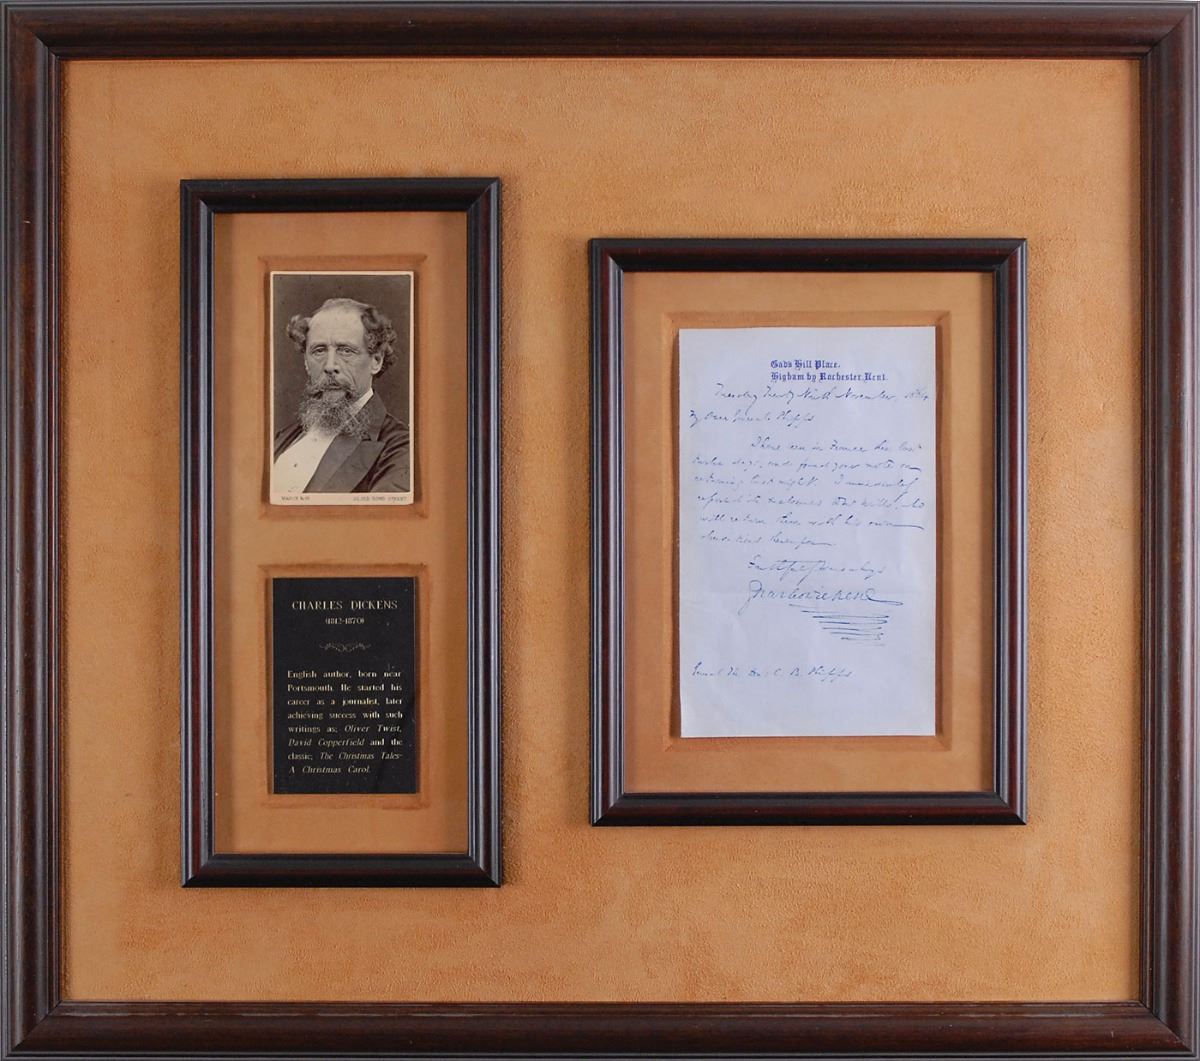 WATKINS
OLD BOND STREET
CHARLES DICKENS
(1812-1870)
English author, born near
Portsmouth. He started his
career as a journalist, later
achieving success with such
writings as; Oliver Twist,
David Copperfield and the
classic; The Christmas Tales-
A Christmas Carol.
Gads Hill Place,
Higham by Rochester, Kent.
Tuesday Twenty Ninth November, 1864
My Dear General Phipps
I have been in France this last
twelve days, and found your note on
returning last night. I immediately
will return them with his own
Faithfully yours always
Charles Dickens
General The Hon: C. B. Phipps